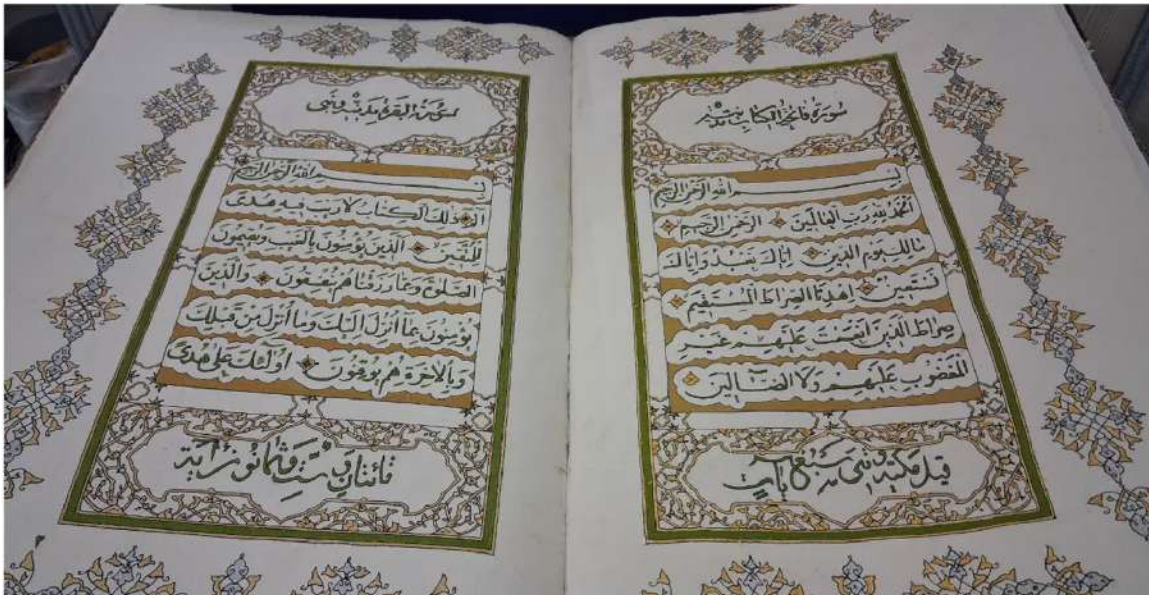 سورة فاتحة الكتاب مدنية
بسم الله الرحمن الرحيم
الحمد لله رب العالمين الرحمن الرحيم
مالك يوم الدين اياك نعبد واياك
نستعين اهدنا الصراط المستقيم
صراط الذين انعمت عليهم غير
المغضوب عليهم ولا الضالين
قيل مكية وهي سبع آيات
سورة البقرة مدنية وهي
بسم الله الرحمن الرحيم
الم ذلك الكتاب لا ريب فيه هدى
للمتقين الذين يؤمنون بالغيب ويقيمون
الصلوة ومما رزقناهم ينفقون والذين
يؤمنون بما أنزل اليك وما أنزل من قبلك
وبالآخرة هم يوقنون اولئك على هدى
مائتان وست وثمانون آية